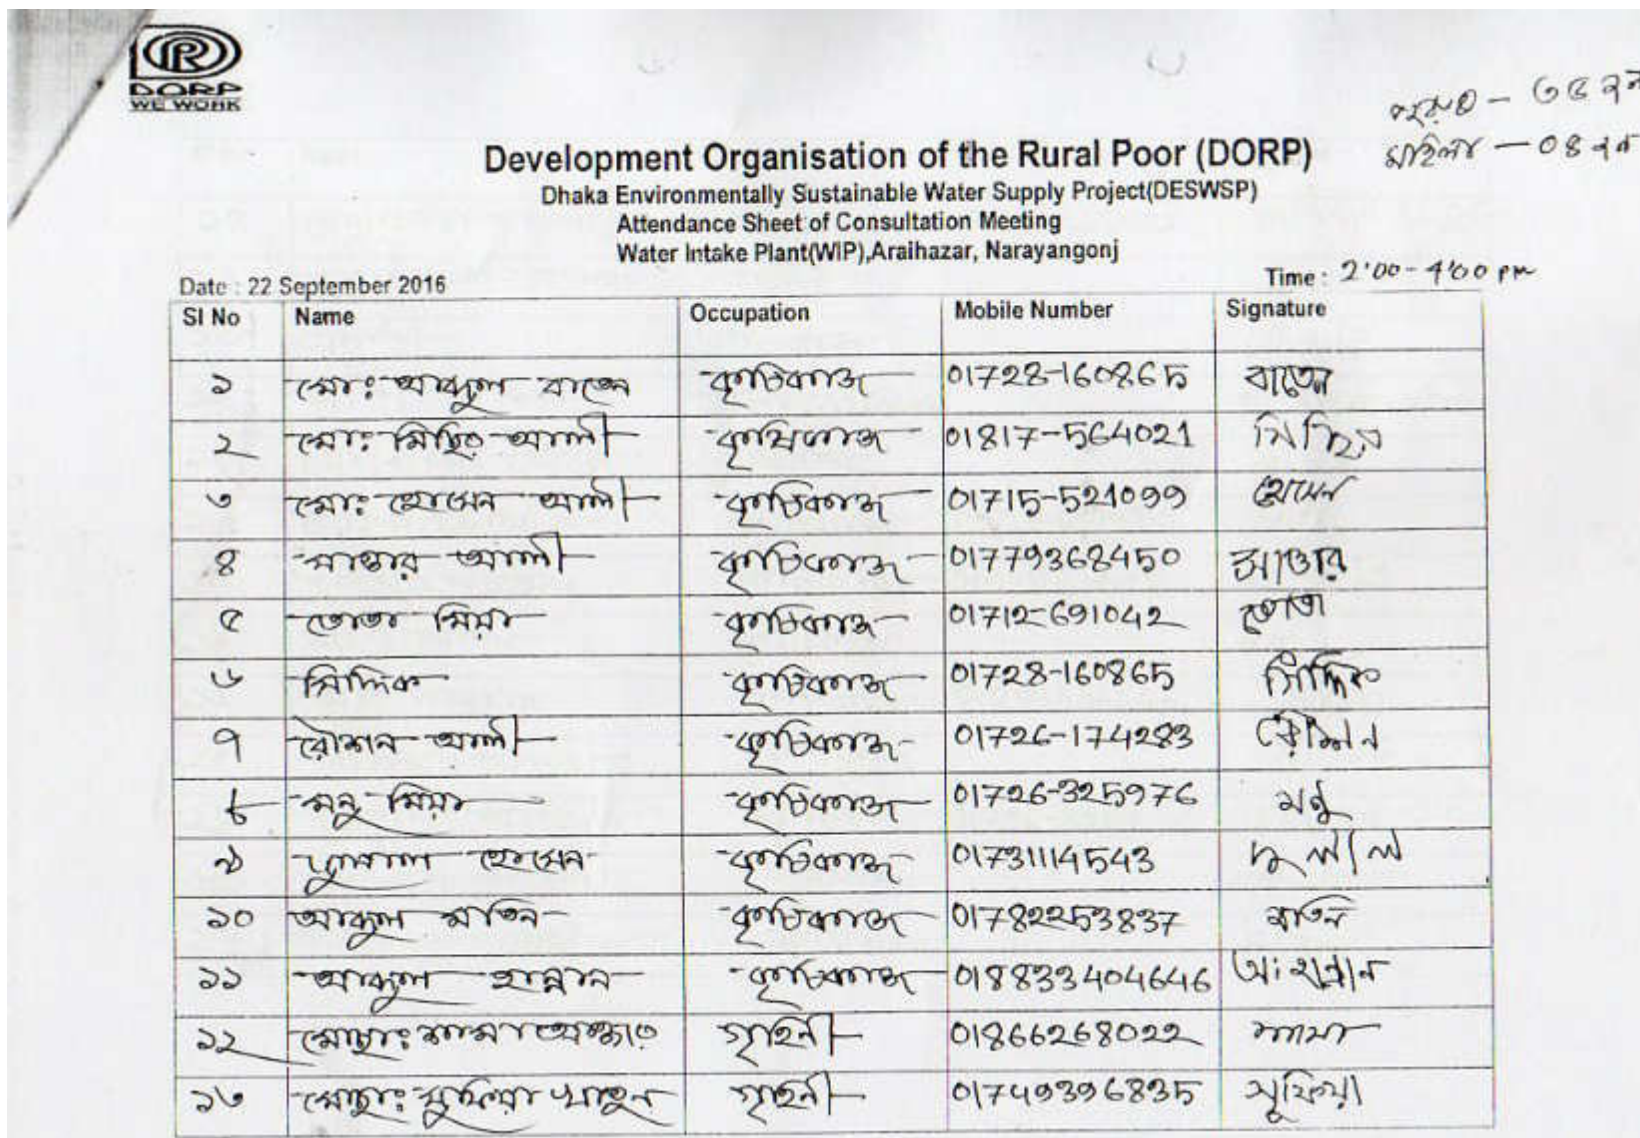 DORP
WE WORK
পুরুষ - ৩৫ জন
মহিলা - ০৪ জন
Development Organisation of the Rural Poor (DORP)
Dhaka Environmentally Sustainable Water Supply Project(DESWSP)
Attendance Sheet of Consultation Meeting
Water Intake Plant(WIP),Araihazar, Narayangonj
Date : 22 September 2016 Time : 2'00 - 4'00 pm
Sl No Name Occupation Mobile Number Signature
১ মোঃ আব্দুল বাতেন কৃষিকাজ 01728-160865 বাতেন
২ মোঃ মিছির আলী কৃষিকাজ 01817-564021 মিছির
৩ মোঃ হোসেন আলী কৃষিকাজ 01715-521099 হোসেন
৪ সাত্তার আলী কৃষিকাজ 01779368450 সাত্তার
৫ তোতা মিয়া কৃষিকাজ 01712-691042 তোতা
৬ সিদ্দিক কৃষিকাজ 01728-160865 সিদ্দিক
৭ রৌশন আলী কৃষিকাজ 01726-174283 রৌশন
৮ মনু মিয়া কৃষিকাজ 01726-325976 মনু
৯ দুলাল হোসেন কৃষিকাজ 01731114543 দুলাল
১০ আব্দুল মতিন কৃষিকাজ 01782253837 মতিন
১১ আব্দুল হান্নান কৃষিকাজ 018833404646 আঃ হান্নান
১২ মোছাঃ শামা আক্তার গৃহিনী 01866268022 শামা
১৩ মোছাঃ সুফিয়া খাতুন গৃহিনী 01749396835 সুফিয়া